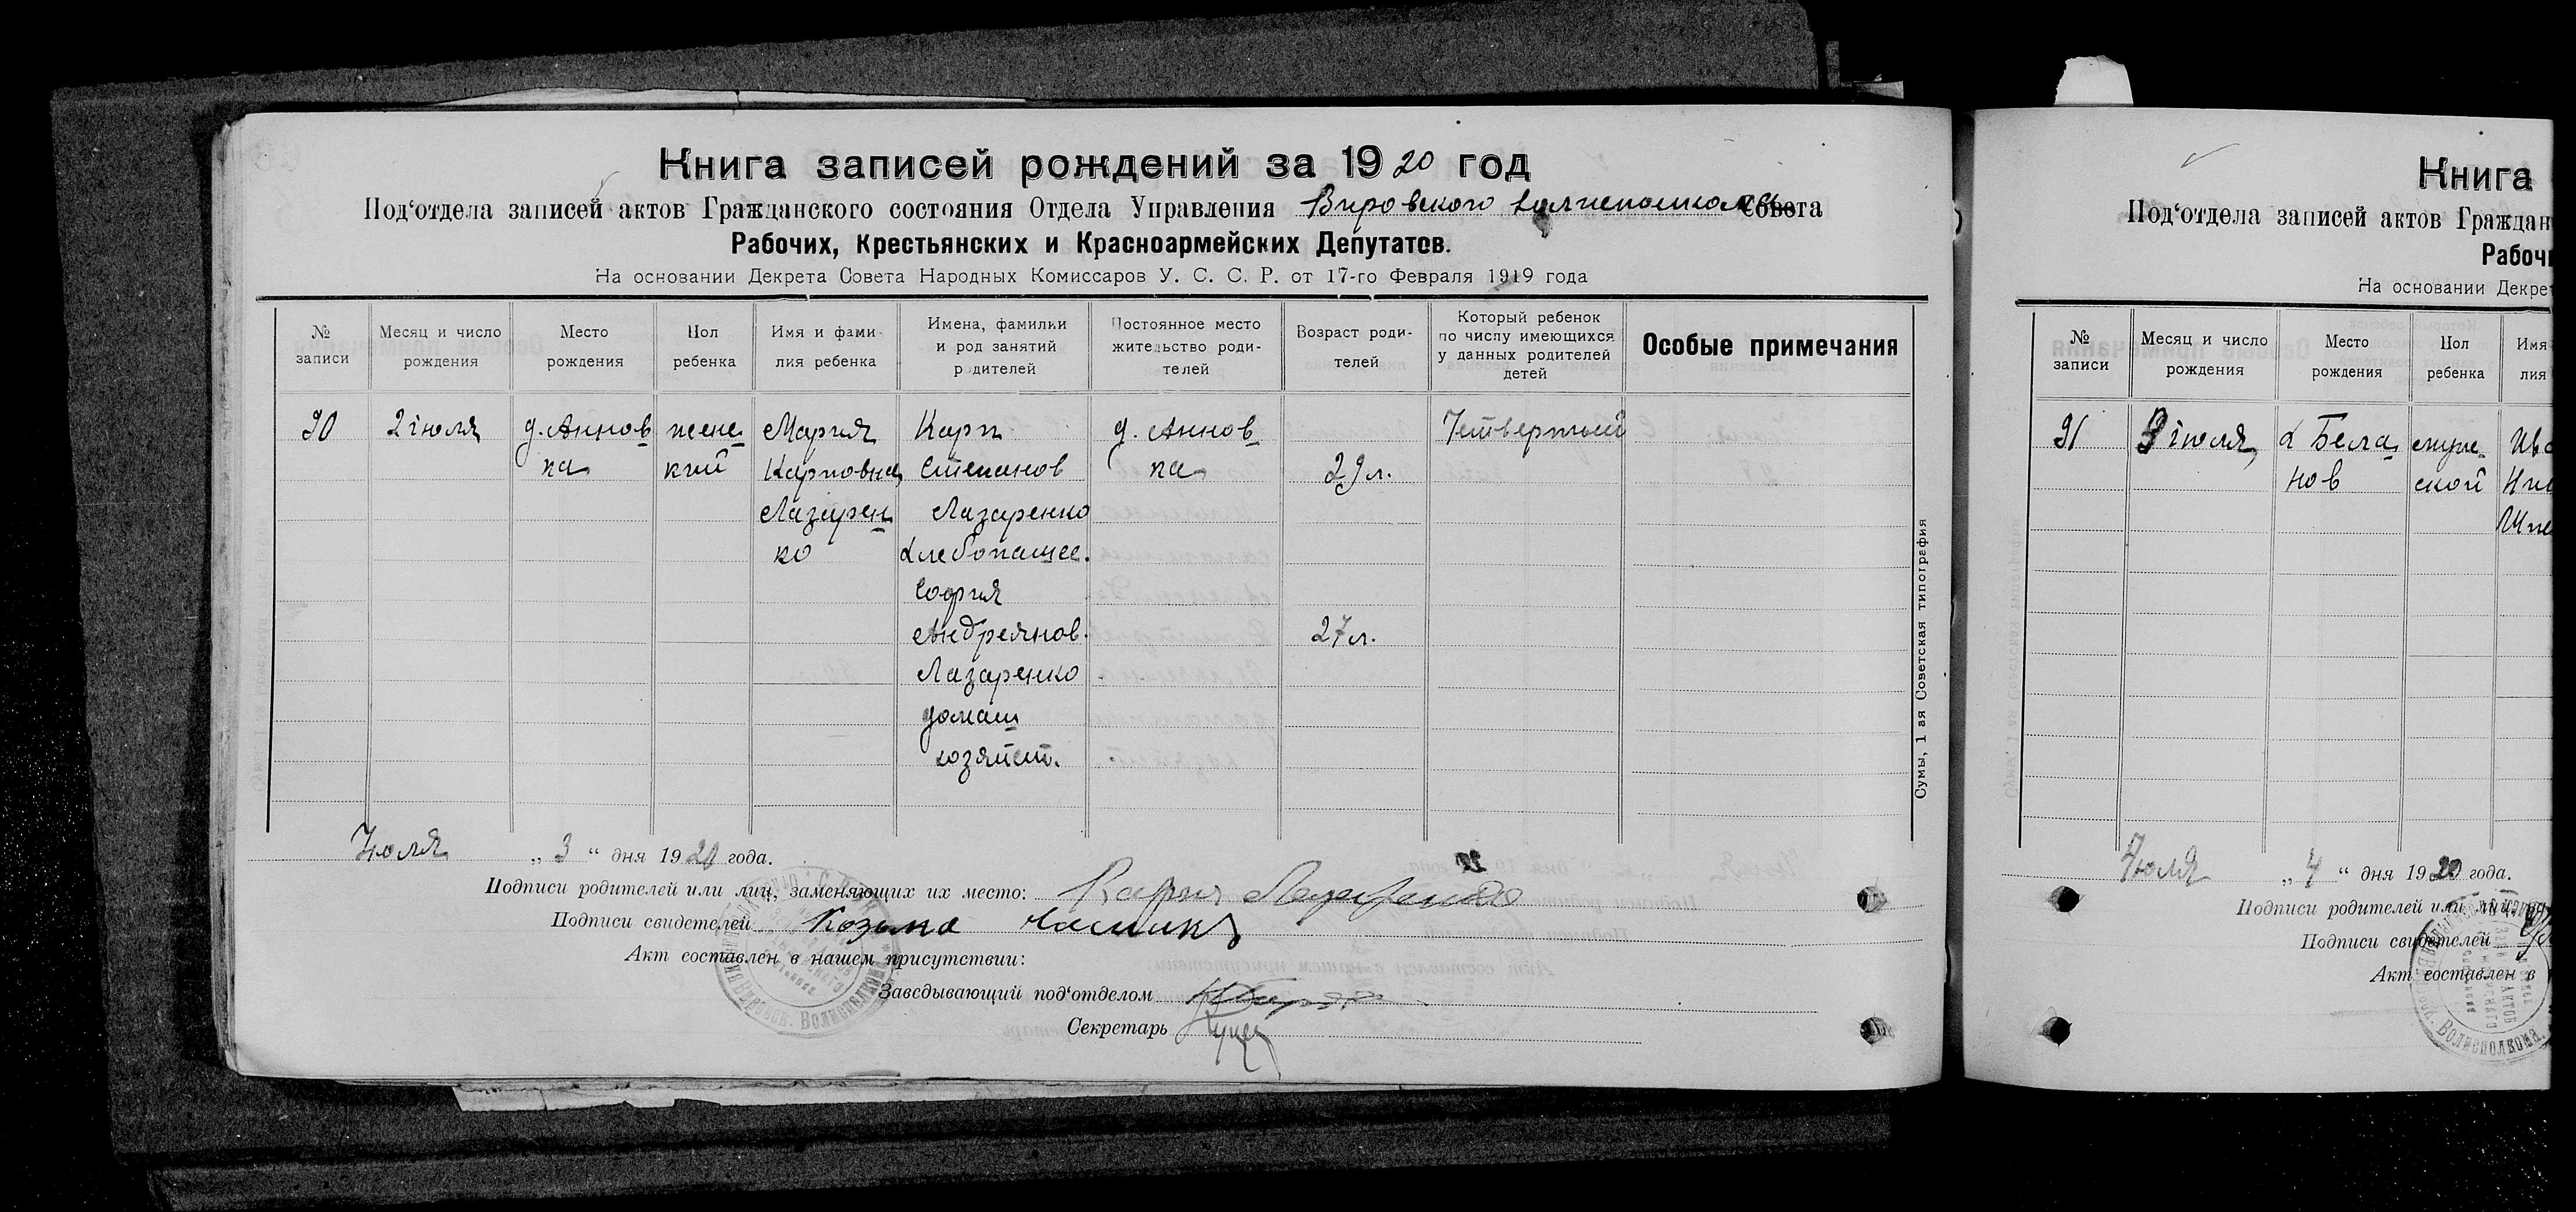 Книга записей рождений за 1920 год
Под‘отдела записей актов Гражданского состояния Отдела Управления Вировского волисполкома Совета
Рабочих, Крестьянских и Красноармейских Депутатов.
На основании Декрета Совета Народных Комиссаров У. С. С. Р. от 17-го Февраля 1919 года
№ записи
Месяц и число рождения
Место рождения
Пол ребенка
Имя и фами- лия ребенка
Имена, фамилии и род занятий родителей
Постоянное место жительство роди- телей
Возраст роди- телей
Который ребенок по числу имеющихся у данных родителей детей
Особые примечания
90 2 июля д. Аннов женс Мария Карп д. Аннов Четвертый
ка кий Карповна Степанов ка 29 л.
Лазарен Лазаренко
ко хлебопашес.
София
Андреянов. 27 л.
Лазаренко
домаш
хозяйст.
Июля „ 3 “ дня 1920 года.
Подписи родителей или лиц, заменяющих их место: Карпъ Лазаренко
Подписи свидетелей Козьма
Акт составлен в нашем присутствии:
Заведывающий под‘отделом
Секретарь
Сумы, 1 ая Советская типография
Книга
Под‘отдела записей актов Граждан
Рабочи
На основании Декре
№ записи
Месяц и число рождения
Место рождения
Пол ребенка
Имя лия
91 3 июля х Бела муж Ива
нов ской
Июля „ 4 “ дня 1920 года.
Подписи родителей или лиц,
Подписи свидетелей
Акт составлен в
Волисполкома